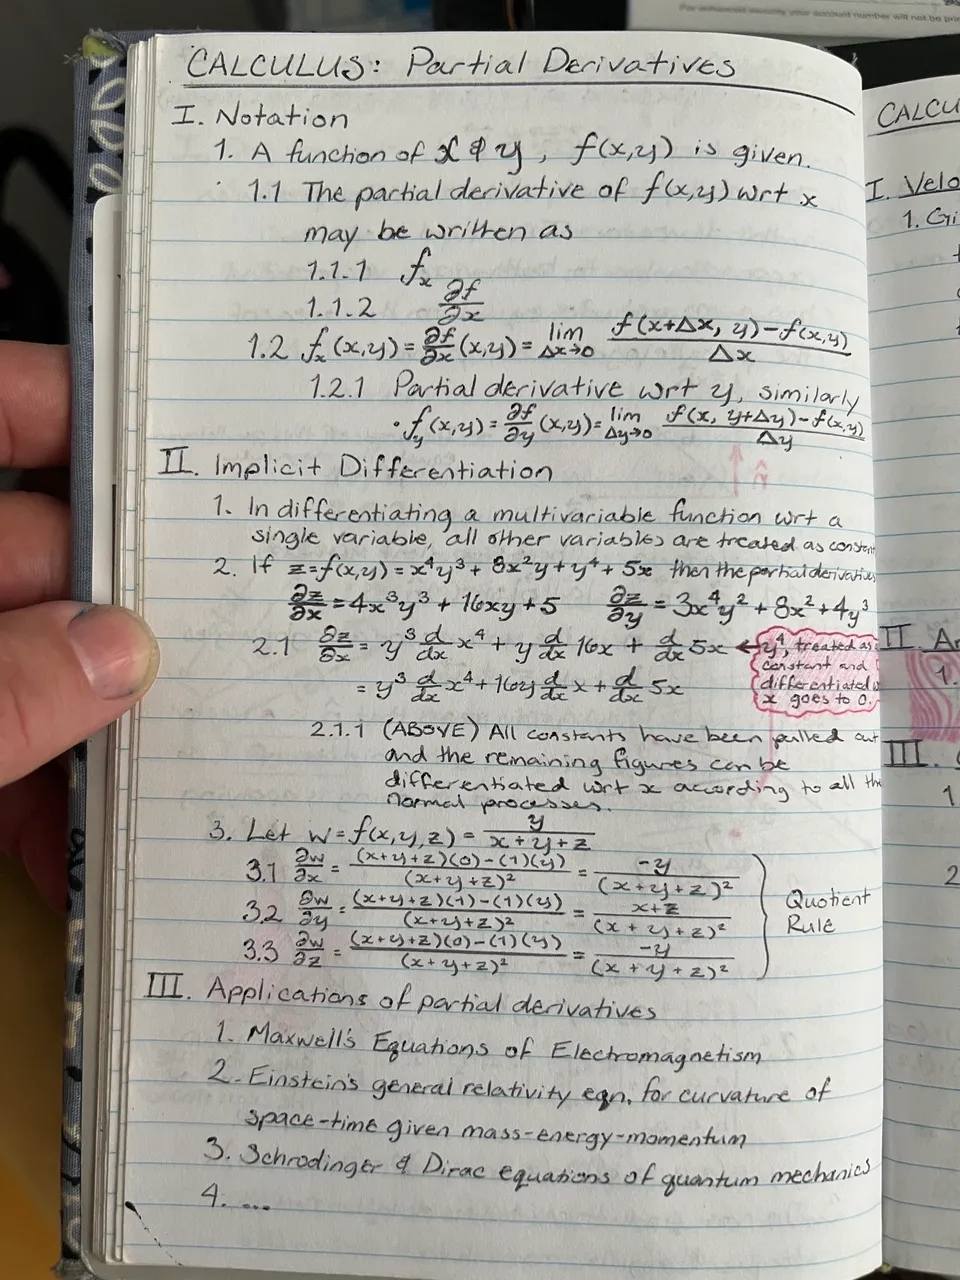 For enhanced security, your account number will not be prin
CALCULUS: Partial Derivatives
I. Notation
1. A function of x & y, f(x,y) is given.
1.1 The partial derivative of f(x,y) wrt x
may be written as
1.1.1 fₓ
1.1.2 ∂f/∂x
1.2 fₓ(x,y) = ∂f/∂x (x,y) = lim Δx→0 f(x+Δx, y)-f(x,y) / Δx
1.2.1 Partial derivative wrt y, similarly
• f_y(x,y) = ∂f/∂y (x,y) = lim Δy→0 f(x, y+Δy)-f(x,y) / Δy
II. Implicit Differentiation
1. In differentiating a multivariable function wrt a
single variable, all other variables are treated as constant
2. If z=f(x,y) = x⁴y³ + 8x²y + y⁴ + 5x then the partial derivatives
∂z/∂x = 4x³y³ + 16xy + 5 ∂z/∂y = 3x⁴y² + 8x² + 4y³
2.1 ∂z/∂x = y³ d/dx x⁴ + y d/dx 16x + d/dx 5x ← y⁴, treated as
constant and
= y³ d/dx x⁴ + 16y d/dx x + d/dx 5x differentiated w
x goes to 0.
2.1.1 (ABOVE) All constants have been pulled out
and the remaining figures can be
differentiated wrt x according to all the
normal processes.
3. Let w = f(x,y,z) = y / x+y+z
3.1 ∂w/∂x = (x+y+z)(0)-(1)(y) / (x+y+z)² = -y / (x+y+z)²
3.2 ∂w/∂y = (x+y+z)(1)-(1)(y) / (x+y+z)² = x+z / (x+y+z)² Quotient
Rule
3.3 ∂w/∂z = (x+y+z)(0)-(1)(y) / (x+y+z)² = -y / (x+y+z)²
III. Applications of partial derivatives
1. Maxwell's Equations of Electromagnetism
2. Einstein's general relativity eqn. for curvature of
space-time given mass-energy-momentum
3. Schrodinger & Dirac equations of quantum mechanics
4. ...
CALCU
I. Velo
1. Gi
II. Ar
1.
III.
1
2